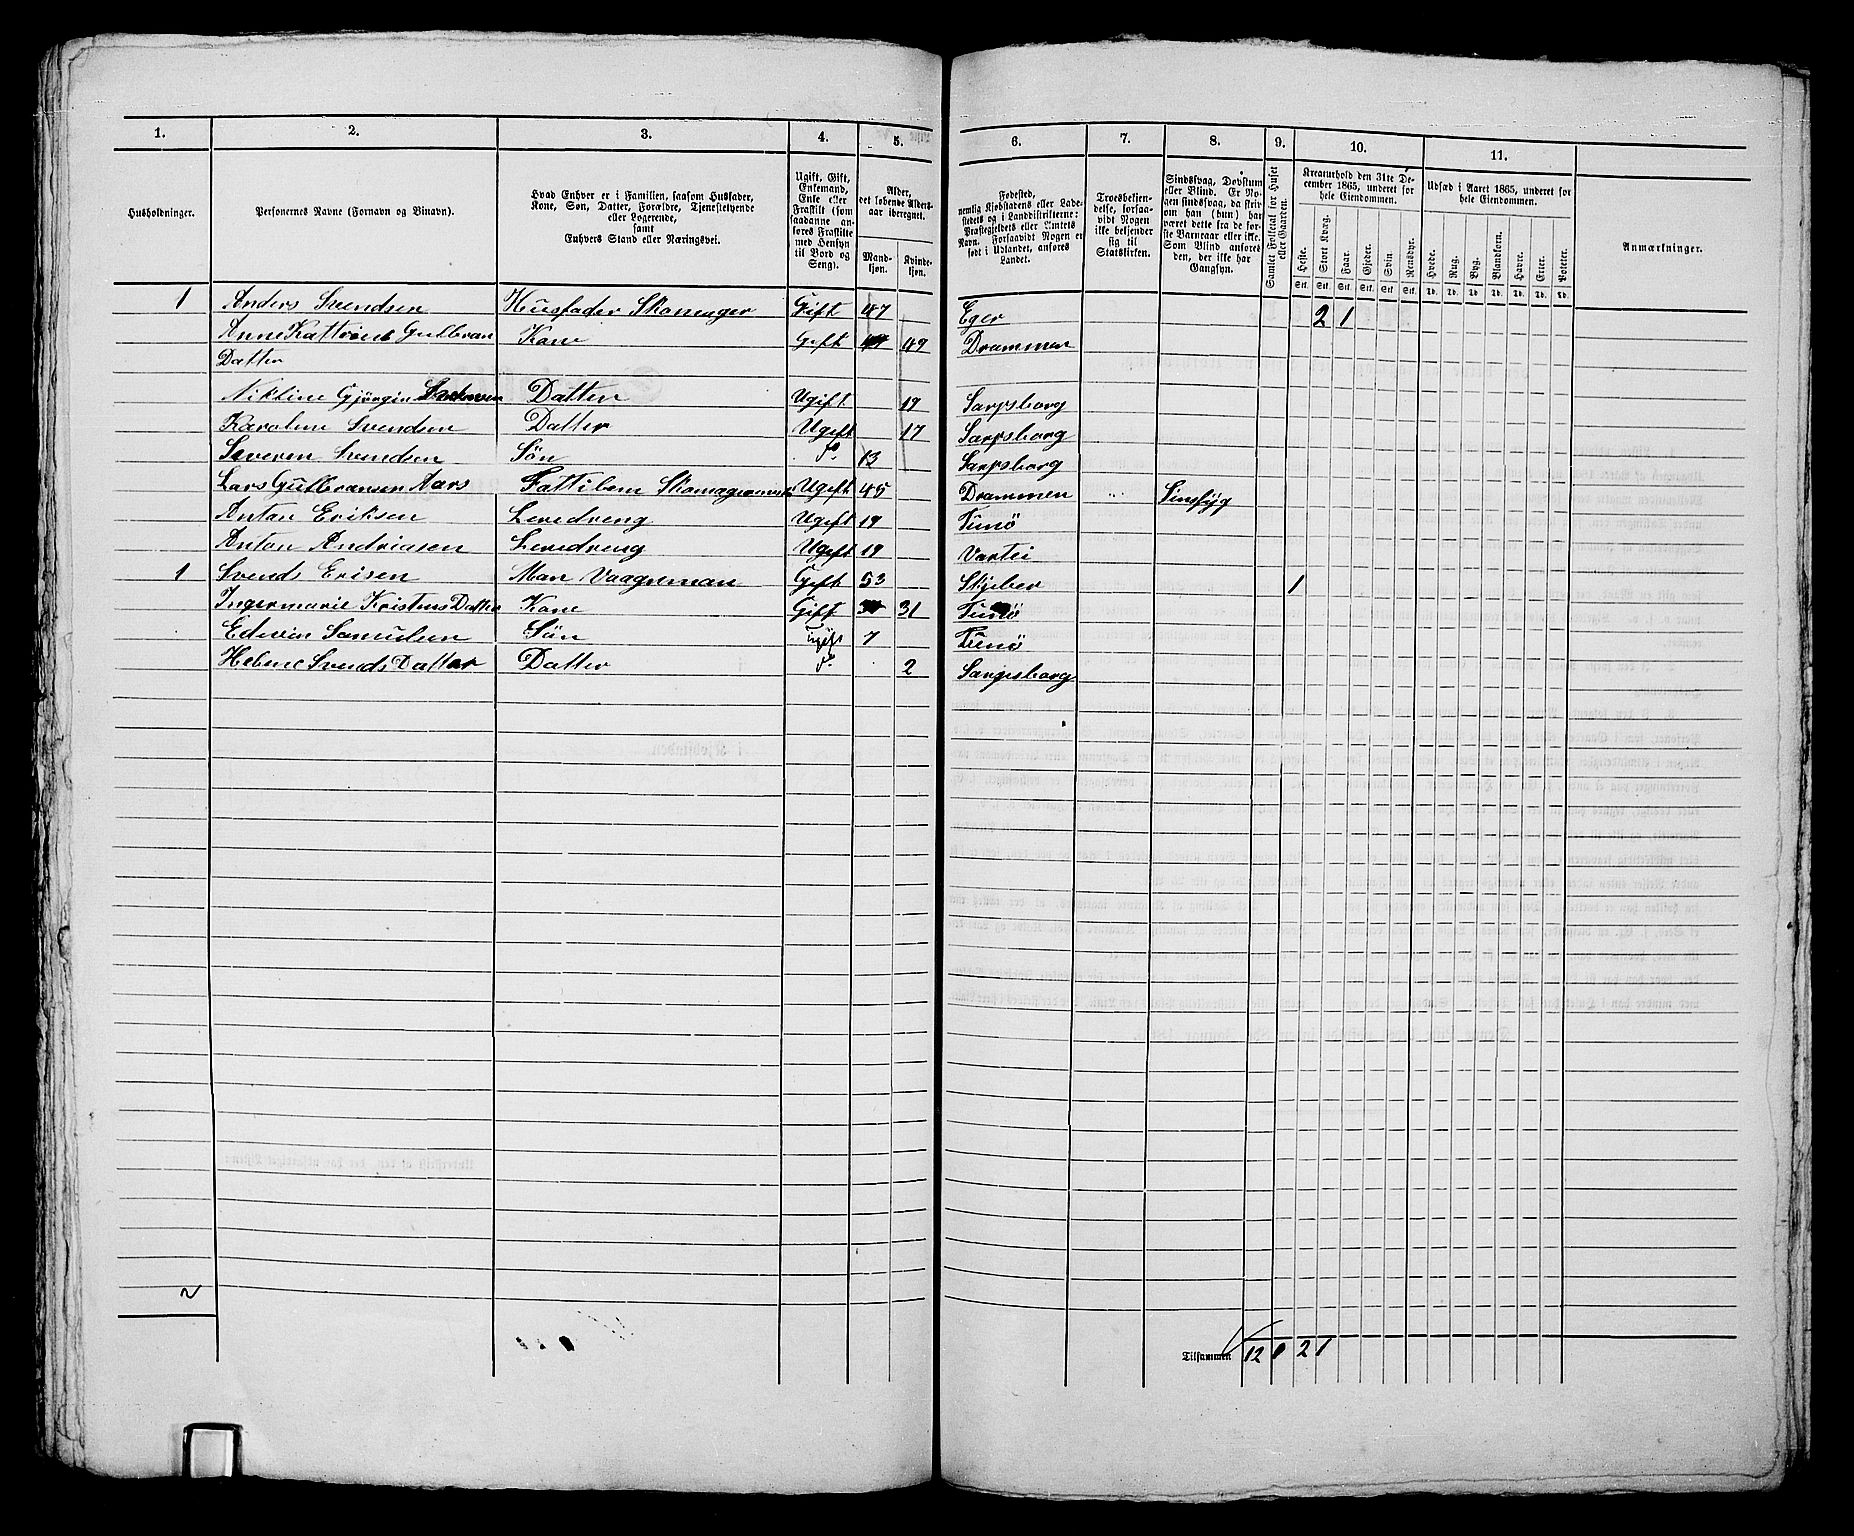 1. 2. 3. 4. 5. 6. 7. 8. 9. 10. 11.
Husholdninger.
Personernes Navne (Fornavn og Binavn).
Hvad Enhver er i Familien, saasom Husfader,
Kone, Søn, Datter, Forældre, Tjenestetyende
eller Logerende,
samt
Enhvers Stand eller Næringsvei.
Ugift, Gift,
Enkemand,
Enke eller
Fraskilt (som
saadanne an-
føres Fraskilte
med Hensyn
til Bord og
Seng).
Alder,
det løbende Alders-
aar iberegnet.
Mand-
kjøn.
Kvinde-
kjøn.
Fødested,
nemlig Kjøbstadens eller Lade-
stedets og i Landdistrikterne:
Præstegjeldets eller Amtets
Navn. Forsaavidt Nogen er
født i Udlandet, anføres
Landet.
Troesbekjen-
delse, forsaa-
vidt Nogen
ikke bekjender
sig til
Statskirken.
Sindssvag, Døvstum
eller Blind. Er No-
gen sindssvag, da skriv
om han (hun) har
været dette fra de før-
ste Barneaar eller ikke.
Som Blind anføres
den, der ikke har
Gangsyn.
Samlet Folketal for Huset
eller Gaarden.
Kreaturhold den 31te De-
cember 1865, underet for
hele Eiendommen.
Heste. Stort Kvæg. Faar. Gjeder. Svin. Rensdyr.
Stk. Stk. Stk. Stk. Stk. Stk.
Udsæd i Aaret 1865, underet for
hele Eiendommen.
Hvede. Rug. Byg. Blandkorn. Havre. Erter. Poteter.
Td. Td. Td. Td. Td. Td. Td.
Anmærkninger.
1 Anders Svendsen Husfader Skomager Gift 47 Eger 2 1
Anne Kattrine Gulbran Kone Gift 49 Drammen
Datter
Nikline Gjørgin Datter Ugift 19 Sarpsborg
Karoline Svendsen Datter Ugift 17 Sarpsborg
Severen Svendsen Søn do. 13 Sarpsborg
Lars Gulbransen Aars Fattilem Ugift 45 Drammen " Sinsfyg
Anton Eriksen Leredreng Ugift 19 Tunø
Anton Andriasen Leredreng Ugift 19 Vartei
1 Svends Erisen Man Vaagneman Gift 53 Skjeber 1
Ingermarie Kristens Datter Kone Gift 31 Tunø
Edevin Samulsen Søn Ugift 7 Tunø
Helene Svends Datter Datter do 2 Sarpsborg
2
Tilsammen 12 1 2 1